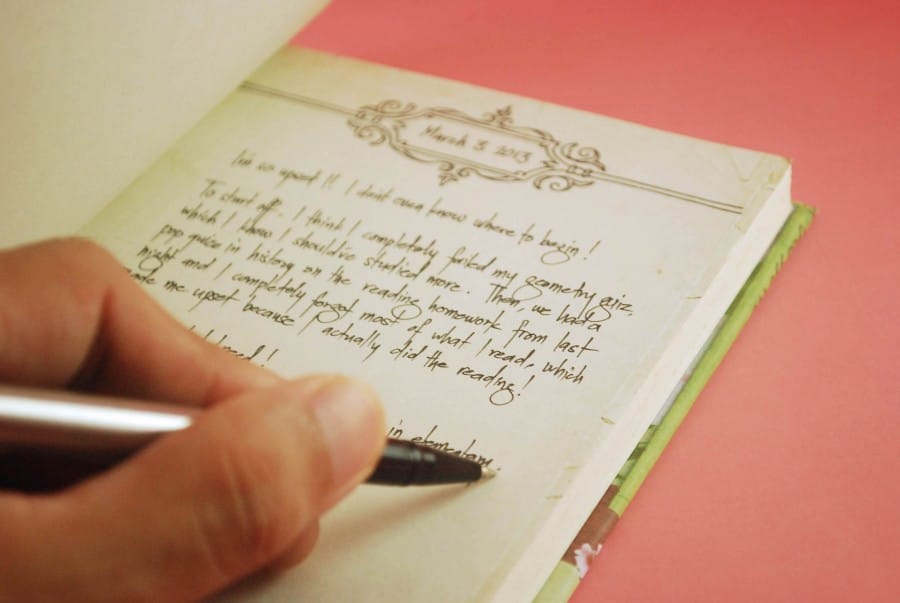 March 3 2013
I'm so upset!! I don't even know where to begin!
To start off - I think I completely failed my geometry quiz,
which I know I should've studied more. Then, we had a
pop quize in history on the reading homework from last
night and I completely forgot most of what I read, which
made me upset because I actually did the reading!
in elementary